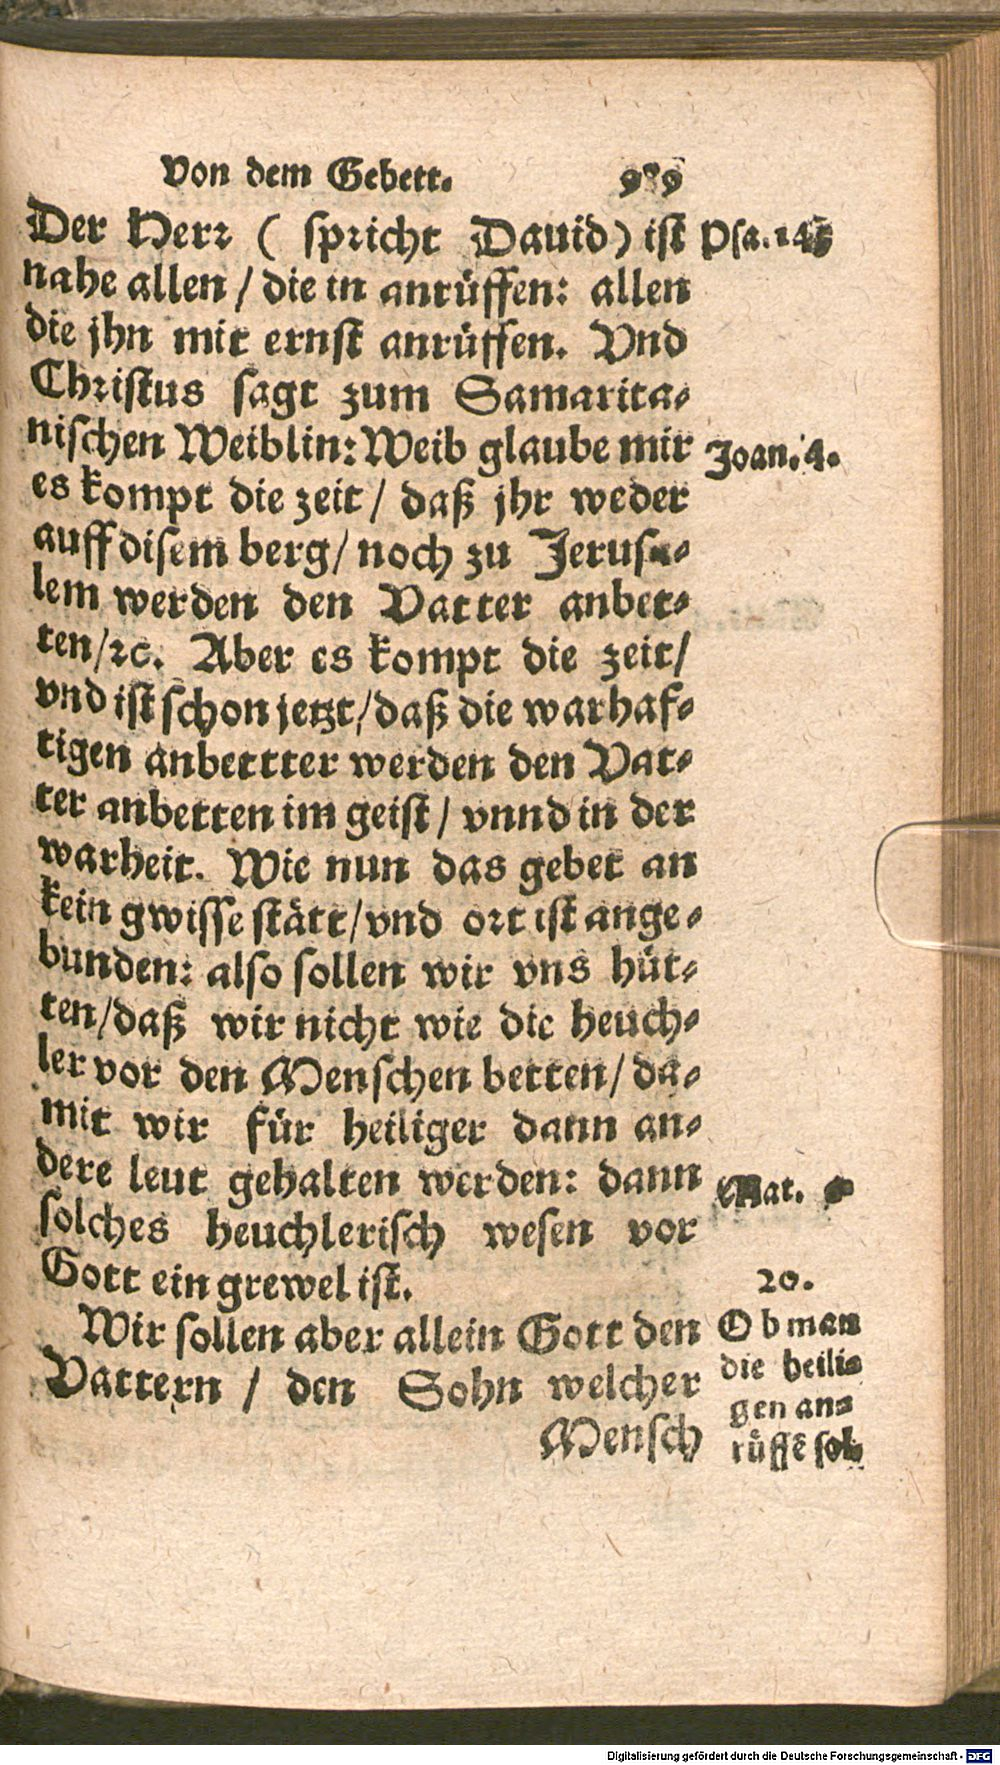 Von dem Gebett. 989
Der Herr ( spricht Dauid) ist
nahe allen / die in anrüffen: allen
die jhn mit ernst anrüffen. Vnd
Christus sagt zum Samarita-
nischen Weiblin: Weib glaube mir
es kompt die zeit / daß jhr weder
auff disem berg / noch zu Jerusa-
lem werden den Vatter anbet-
ten / ꝛc. Aber es kompt die zeit /
vnd ist schon jetzt / daß die warhaf-
tigen anbettter werden den Vat-
ter anbetten im geist / vnnd in der
warheit. Wie nun das gebet an
kein gwisse stätt / vnd ort ist ange-
bunden: also sollen wir vns hüt-
ten / daß wir nicht wie die heuch-
ler vor den Menschen betten / da-
mit wir für heiliger dann an-
dere leut gehalten werden: dann
solches heuchlerisch wesen vor
Gott ein grewel ist.
Wir sollen aber allein Gott den
Vattern / den Sohn welcher
Mensch
Psa. 145
Joan. 4.
Mat.
20.
Ob man
die heili-
gen an-
rüffē sol.
Digitalisierung gefördert durch die Deutsche Forschungsgemeinschaft - DFG